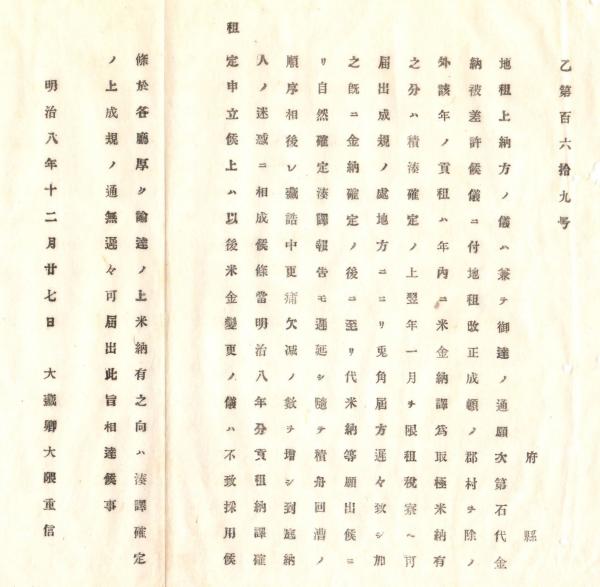 乙第百六拾九号
府縣
地租上納方ノ儀ハ兼テ御達ノ通願次第石代金
納被差許候儀ニ付地租改正成頓ノ郡村ヲ除ノ
外該年ノ貢租ハ年內ニ米金納譯爲取極米納有
之分ハ積湊確定ノ上翌年一月ヲ限租稅寮ヘ可
届出成規ノ處地方ニヨリ兎角届方遲々致シ加
之既ニ金納確定ノ後ニ至リ代米納等願出候ニ
リ自然確定湊譯報告モ遲延シ隨テ積舟回漕ノ
順序相後レ藏詰中更痛欠減ノ數ヲ增シ到底納
人ノ迷惑ニ相成候條當明治八年分貢租納譯確
定申立候上ハ以後米金變更ノ儀ハ不致採用候
租
條於各廳厚ク諭達ノ上米納有之向ハ湊譯確定
ノ上成規ノ通無遲々可届出此旨相達候事
明治八年十二月廿七日　大藏卿大隈重信